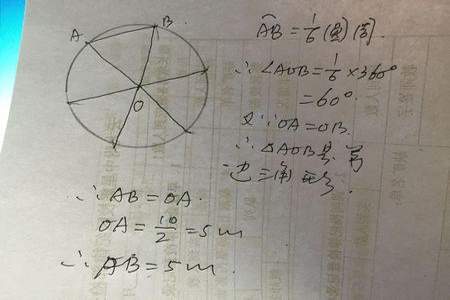 A B
O
AB = 1/6 (圆)周.
∴ ∠AOB = 1/6 × 360°
= 60°.
又∵ OA = OB.
∴ △AOB是 等
边三角形.
∴ AB = OA.
OA = 10/2 = 5 m
∴ AB = 5 m.